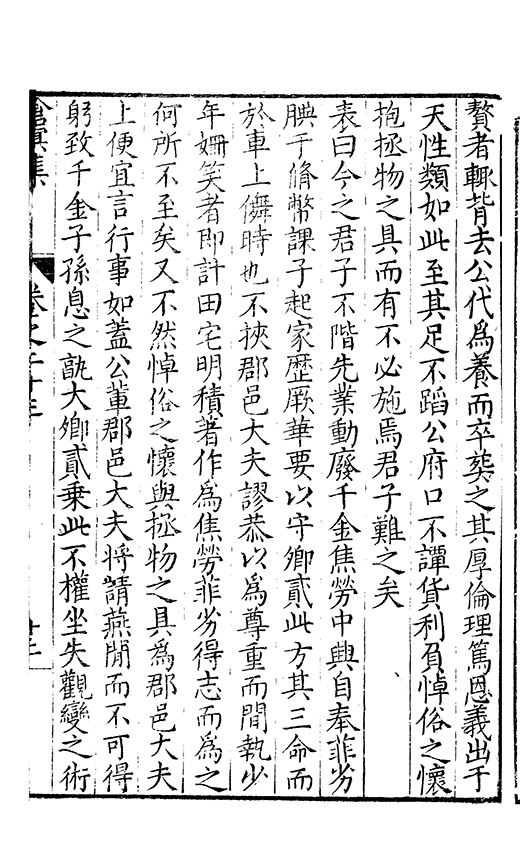 贅者輒背去公代爲養而卒葬之其厚倫理篤恩義出于
天性類如此至其足不蹈公府口不譚貨利負悼俗之懷
抱拯物之具而有不必施焉君子難之矣
表曰今之君子不階先業動廢千金焦勞中興自奉菲劣
腆于脩幣課子起家歷厥華要以守卿貳此方其三命而
於車上儛時也不挾郡邑大夫謬恭以爲尊重而間執少
年姍笑者即計田宅明積著作爲焦勞菲劣得志而爲之
何所不至矣又不然悼俗之懷與拯物之具為郡邑大夫
上便宜言行事如蓋公輩郡邑大夫將請燕閒而不可得
躬致千金子孫息之訛大卿貳乗此不權坐失觀變之術
滄溟集
卷之二十三
十三